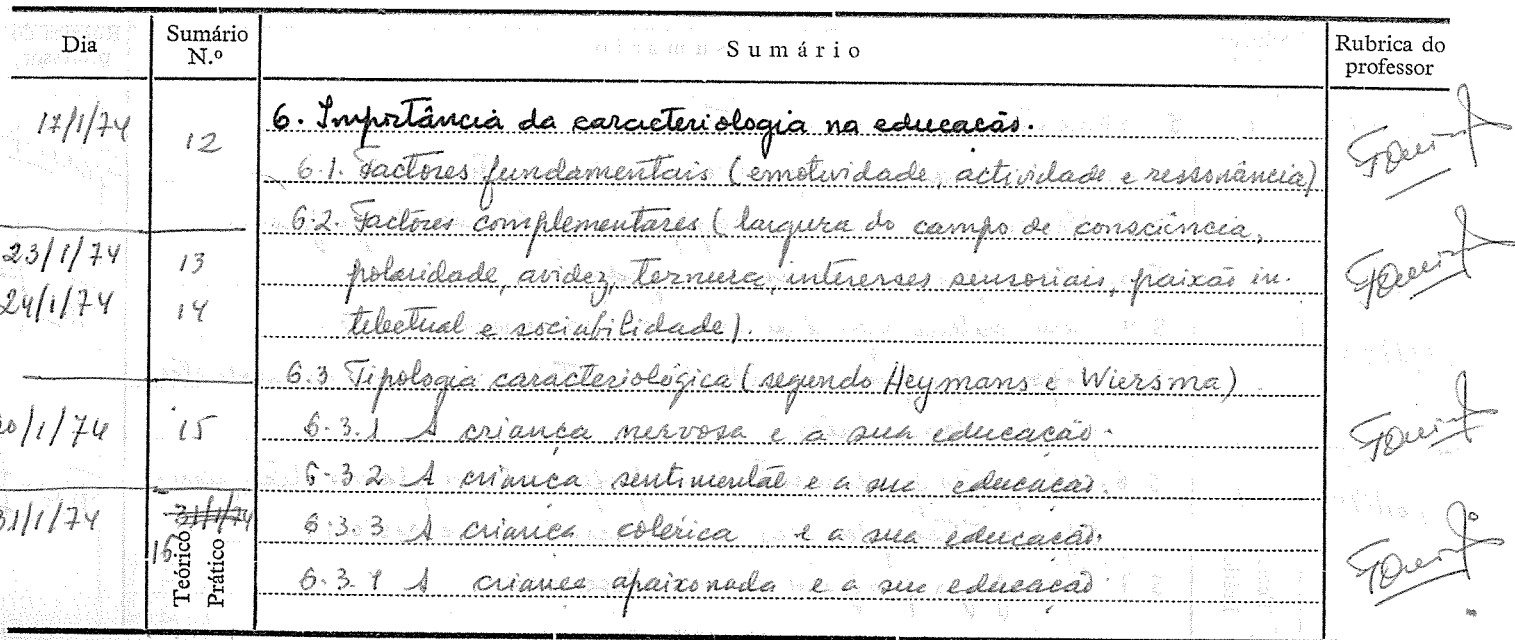 Dia Sumário N.º Sumário Rubrica do professor
17/1/74 12 6. Importância da caracteriologia na educação.
6.1. Factores fundamentais (emotividade, actividade e ressonância)
6.2. Factores complementares (largura do campo de consciência,
23/1/74 13 polaridade, avidez, ternura, interesses sensoriais, paixão in-
24/1/74 14 telectual e sociabilidade).
6.3 Tipologia caracteriológica (segundo Heymans e Wiersma)
30/1/74 15 6.3.1 A criança nervosa e a sua educação.
6.3.2 A criança sentimental e a sua educação.
31/1/74 31/1/74 6.3.3 A criança colérica e a sua educação.
Teórico
Prático
6.3.4 A criança apaixonada e a sua educação.